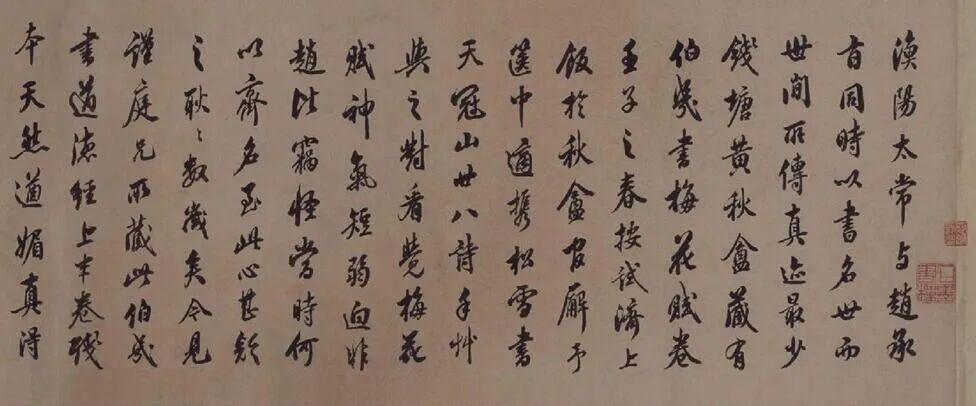 漁陽太常与趙承
旨同時以書名世而
世間所傳真迹最少
錢塘黄秋盦藏有
伯幾書梅花賦卷
壬子之春按試濟上
飯於秋盦官廨予
篋中適攜松雪書
天冠山廿八詩手艸
與之對看覺梅花
賦神氣短弱迥非
趙比竊怪當時何
以齊名至此心甚疑
之耿〻數歲矣今見
謹庭兄所藏此伯幾
書道德經上半卷殘
本天然遒媚真得